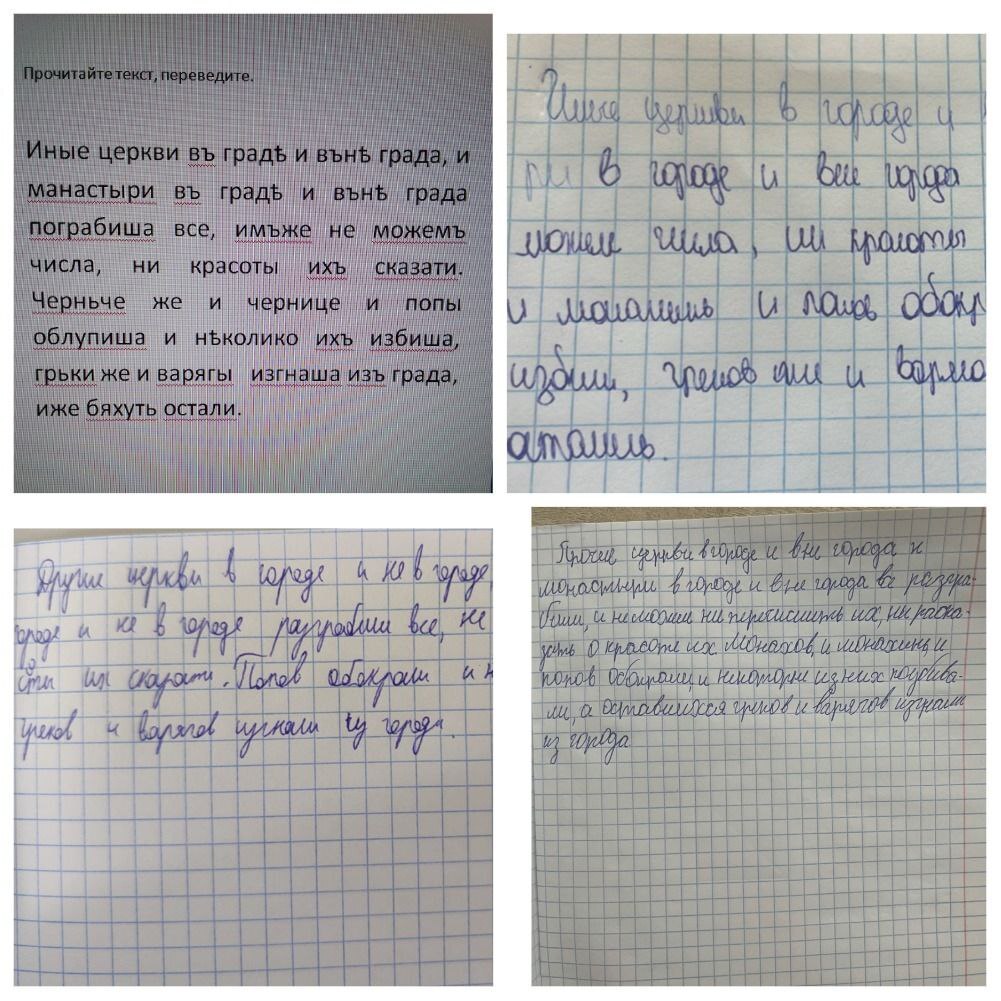 Прочитайте текст, переведите.
Иные церкви въ градѣ и вънѣ града, и
манастыри въ градѣ и вънѣ града
пограбиша все, имъже не можемъ
числа, ни красоты ихъ сказати.
Черньче же и чернице и попы
облупиша и нѣколико ихъ избиша,
грькы же и варягы изгнаша изъ града,
иже бяхуть остали.
Иные церкви в городе и
ри в городе и вне города
можем числа, ни красоты
и монашень и попов обокр
избили, греков же и варяг
Другие церкви в городе и не в городе,
городе и не в городе разграбили все, не
оты их сказати. Попов обокрали и н
греков и варягов изгнали из города.
Прочие церкви в городе и вне города и
монастыри в городе и вне города все разгра-
били, и не можем ни перечислить их, ни расска-
зать о красоте их. Монахов, и монахинь, и
попов обобрали, и некоторых из них поубива-
ли, а оставшихся греков и варягов изгнали
из города